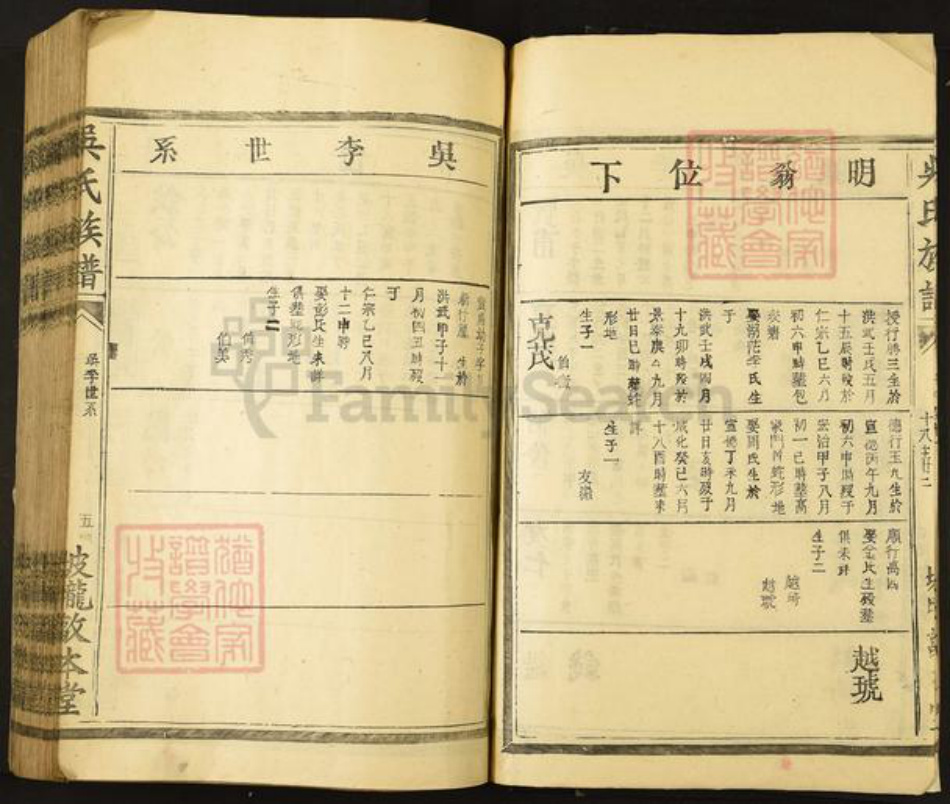 吳氏族譜
明翁位下
授行勝三生於
洪武壬戌五月
十五辰時歿於
仁宗乙巳六月
初六申時葬包
娶湖茫李氏生
于
洪武壬戌四月
十九卯時歿於
廿日巳時葬蛇
形地
生子一
克茂
德行玉九生於
宣德丙午九月
初六申時歿于
宏治甲子八月
初一巳時葬高
娶周氏生於
宣德丁未九月
廿日亥時歿于
成化癸巳六月
十八酉時葬朱
生子一
友
順行高四
娶金氏生歿葬
俱未詳
生子二
越琦
越琥
越琥
吳季世系
洪武甲子十一
月初四丑時歿
于
仁宗乙巳八月
十二申時
娶彭氏生未詳
俱葬蛇形地
生子二
伯秀
伯美
吳氏族譜
吳季世系
五
坡龍敦本堂
FamilySearch